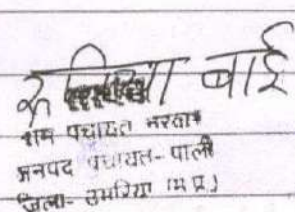 बाई
ग्राम पंचायत
जनपद पंचायत- पाली
जिला- उमरिया (म.प्र.)